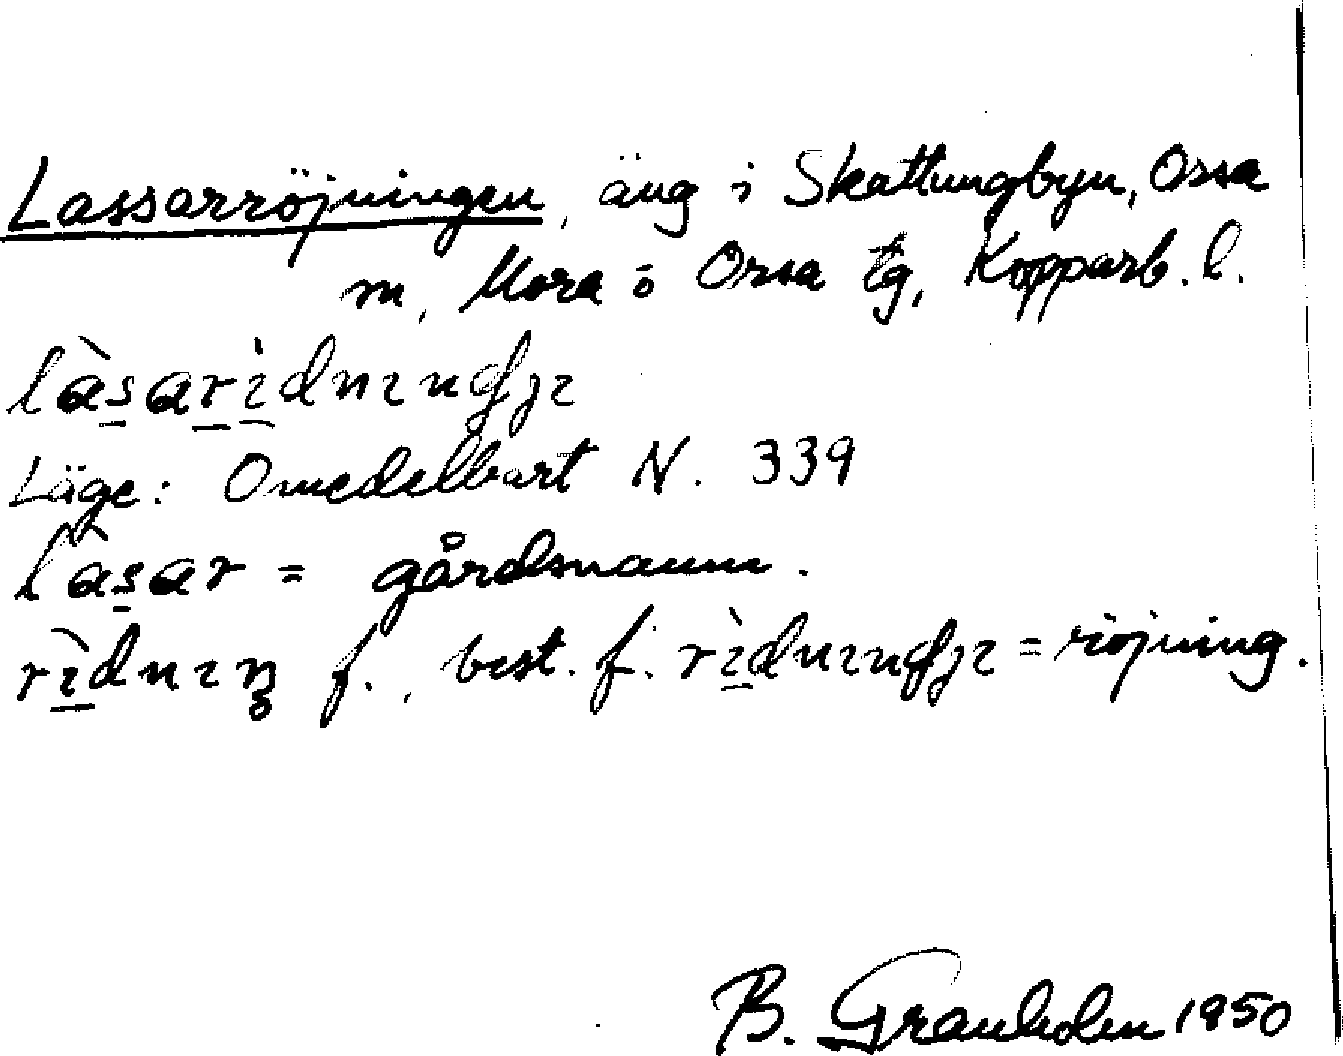 Lassarröjningen, äng i Skattungbyn, Orsa
m, Mora o Orsa tg, Kopparb. l.
làsarìdnɪnʤɪ
Läge: Omedelbart N. 339
làsar = gårdsnamn.
rìdnɪŋ f., best. f. rìdnɪnʤɪ = röjning.
B. Granholm 1950